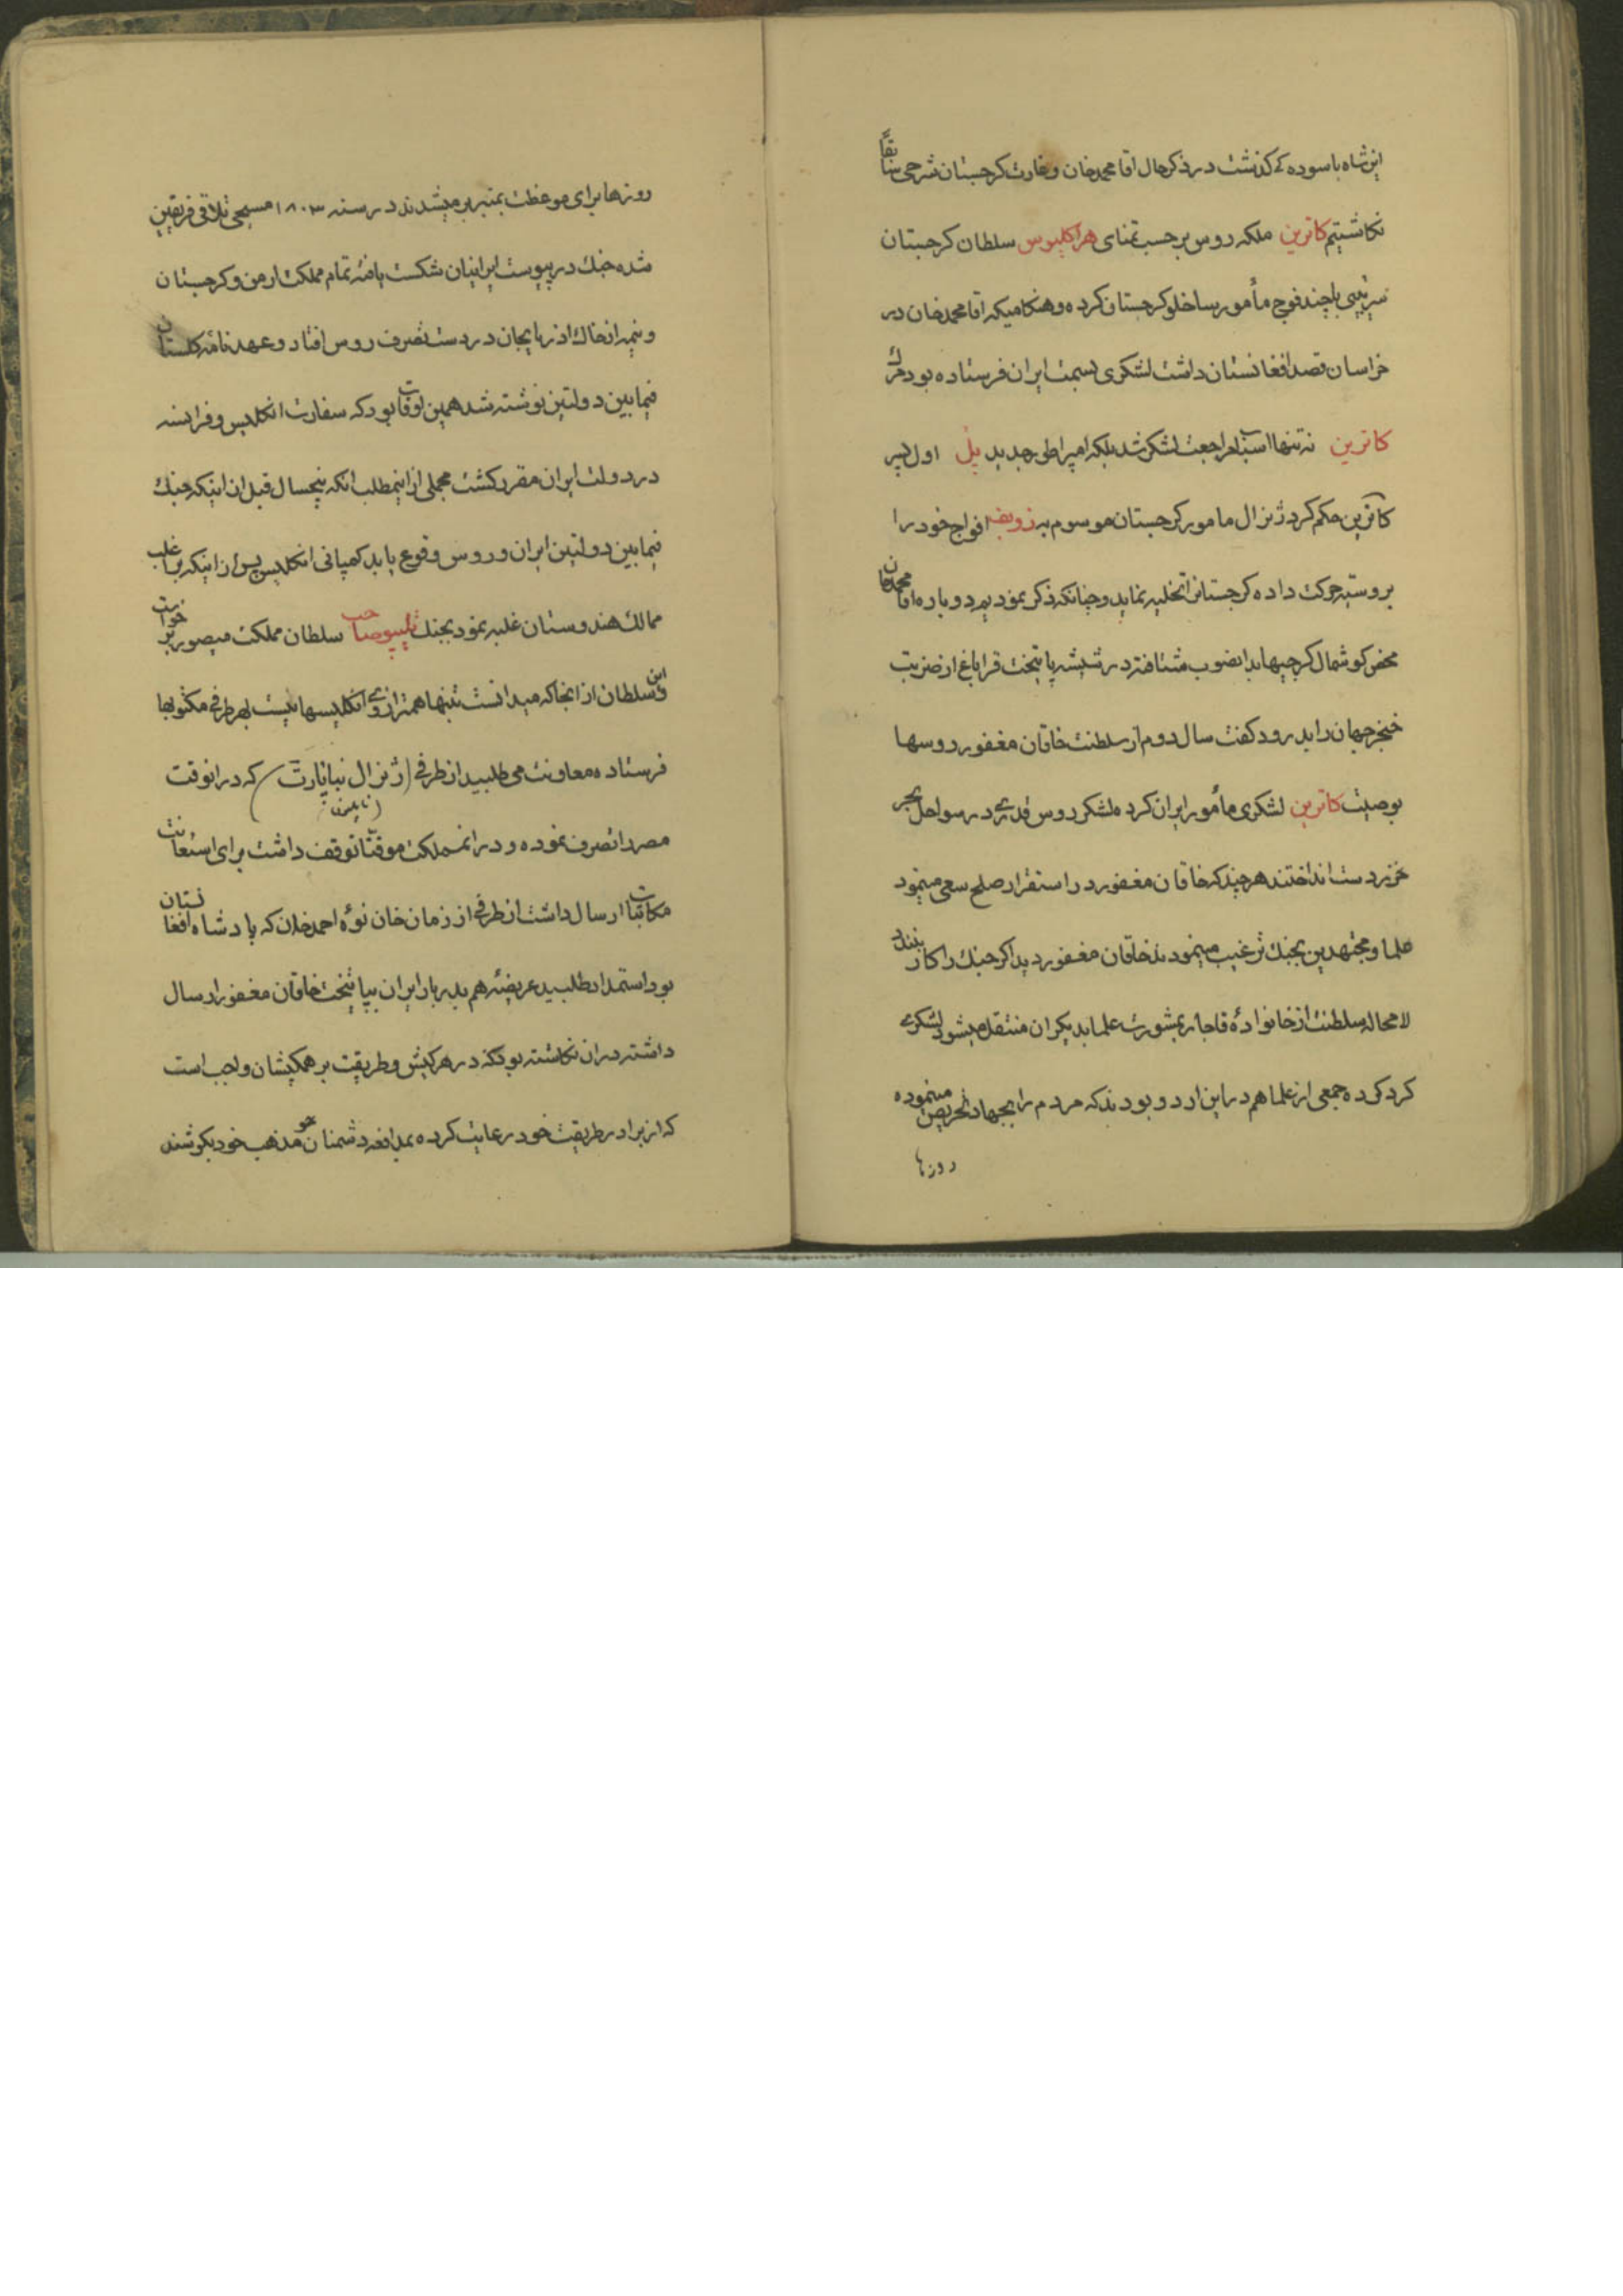 این شاه باسوده کے کذشت در ذکر حال اقا محمد خان و غارت کرجستان شرحی سابقاً
نکاشتیم کاترین ملکه روس برحسب تمنای هراکلیوس سلطان کرجستان
سرتیپی با چند فوج مأمور ساخلو کرجستان کرده و هنکامیکه اقا محمد خان در
خراسان قصد افغانستان داشت لشکری بسمت ایران فرستاده بود مرك
کاترین نه تنها اسباب مراجعت لشکر شد بلکه امپراطور جدید پل اول پسر
کاترین حکم کرد ژنرال مامور کرجستان موسوم به افواج خود را
بروسیه حرکت داده کرجستانرا تخلیه نماید و چنانکه ذکر نمودیم دوباره اقا محمد خان
محض کوشمال کرجیها بدانصوب شتافته در شیشه پایتخت قراباغ از ضربت
خنجر جهان را بدرود کفت سال دوم از سلطنت خاقان مغفور روسها
بوصیت کاترین لشکری مأمور ایران کرده لشکر روس قدرے در سواحل بحر
خزر دست انداختند هرچند که خاقان مغفور در استقرار صلح سعی مینمود
علما و مجتهدین بجنك ترغیب مینمودند خاقان مغفور دید اکر جنك را کار نبندد
لامحاله سلطنت از خانوادۀ قاجار بمشورت علما بدیکران منتقل میشود لشکرے
کرد کرده جمعی از علما هم در این اردو بودند که مردم را بجهاد تحریص مینموده
روزها
روزها برای موعظت بمنبر بر میشدند در سنه ۱۸۰۳ مسیحی تلاقی فریقین
شده جنك در پیوست ایرانیان شکست یافته تمام مملکت ارمن و کرجستان
و نیمه از خاك اذربایجان در دست تصرف روس افتاد و عهدنامه کلستان
فیمابین دولتین نوشته شد همین اوقات بود که سفارت انکلیس و فرانسه
در دولت ایران مقرر کشت مجملی از اینمطلب انکه پنجسال قبل از اینکه جنك
فیمابین دولتین ایران و روس وقوع یابد کمپانی انکلیس پس از اینکه بر اغلب
ممالك هندوستان غلبه نمود بجنك تیپو صاحب سلطان مملکت میصور برخواست
و این سلطان از انجا که میدانست تنها همترازوے انکلیسها نیست بهر طرفی مکتوبها
فرستاده معاونت می طلبید از طرفی (ژنرال بناپارت) که در انوقت
(ناپلیون)
مصر را تصرف نموده و در انمملکت موقتاً توقف داشت برای استعانت
مکاتبات ارسال داشت از طرفی از زمان خان نوۀ احمد خان که پادشاه افغانستان
بود استمداد طلبید عریضۀ هم بدربار ایران بپایتخت خاقان مغفور ارسال
داشته در ان نکاشته بود که در هر کیش و طریقت بر همکیشان واجب است
که از برادر طریقت خود رعایت کرده بمدافعه دشمنان مذهب خود بکوشند